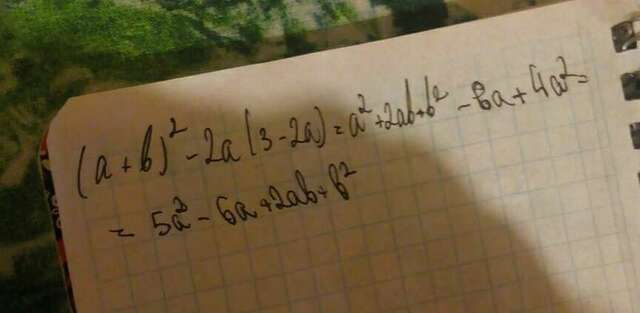 (a+b)² - 2a(3-2a) = a²+2ab+b² - 6a+4a² =
= 5a² - 6a+2ab+b²